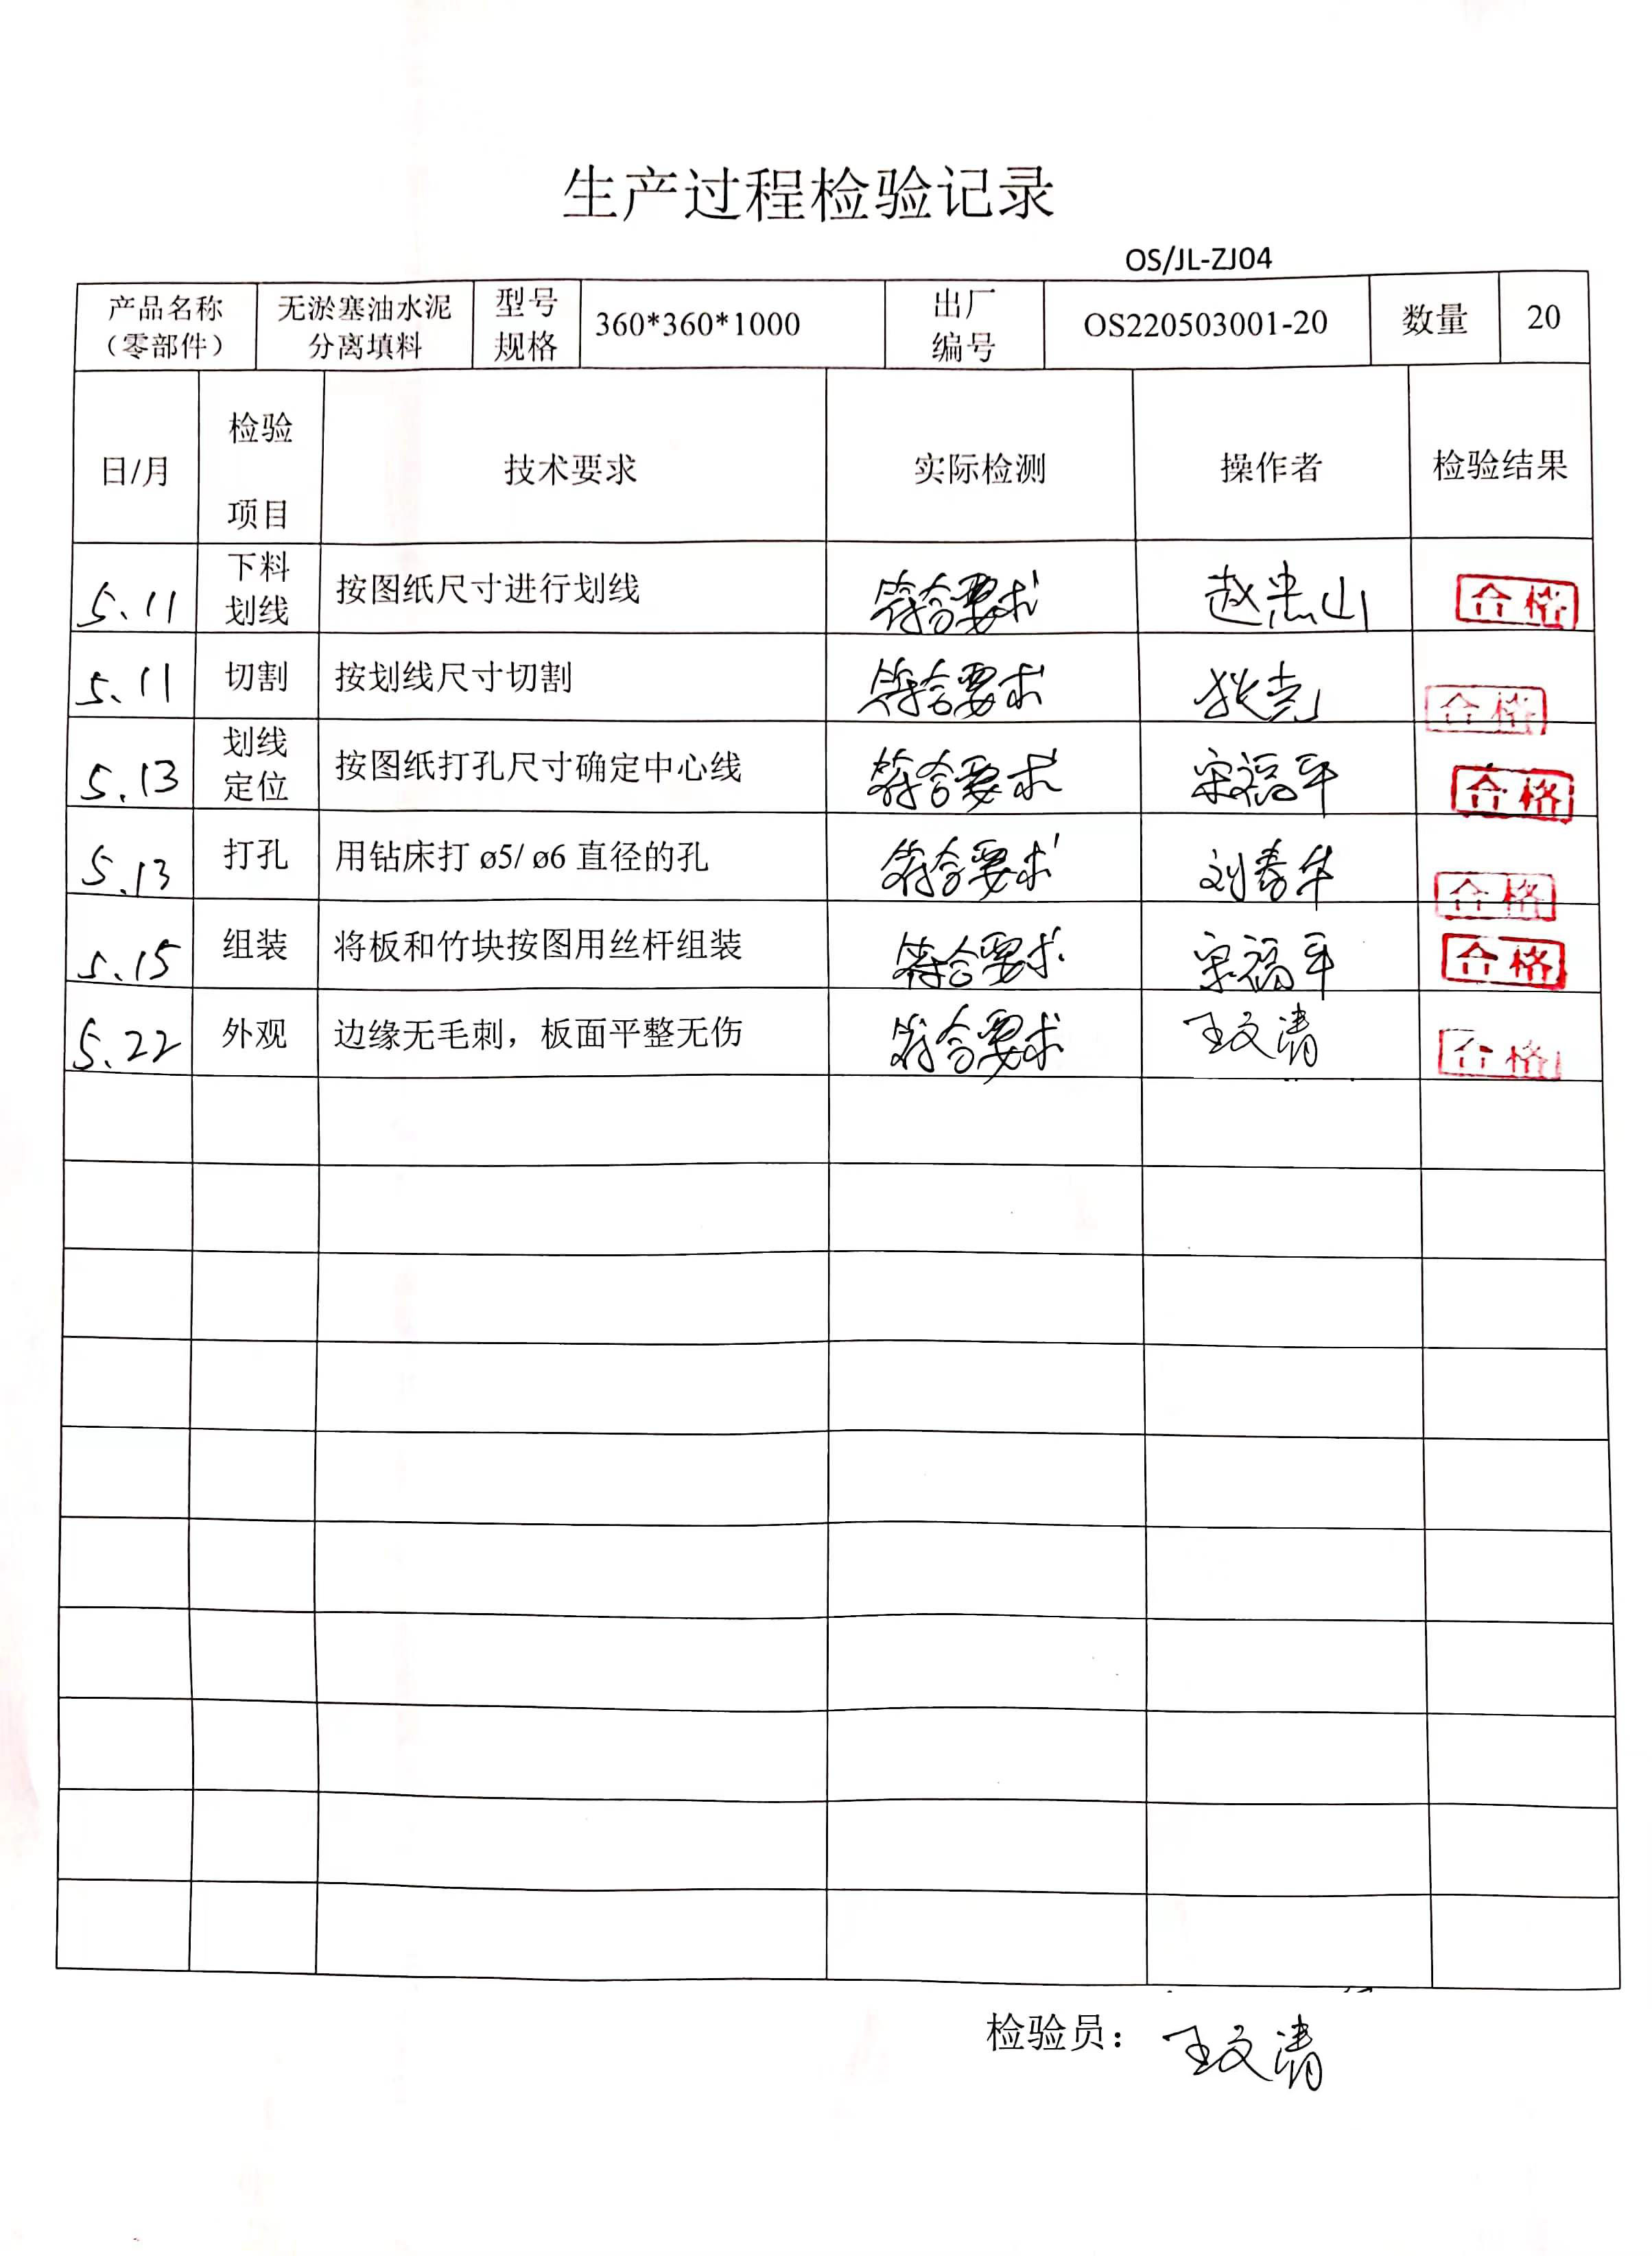 生产过程检验记录
OS/JL-ZJ04
产品名称
（零部件）
无淤塞油水泥
分离填料
型号
规格
360*360*1000
出厂
编号
OS220503001-20
数量
20
日/月
检验
项目
技术要求
实际检测
操作者
检验结果
5.11
下料
划线
按图纸尺寸进行划线
符合要求
赵忠山
合格
5.11
切割
按划线尺寸切割
符合要求
合格
5.13
划线
定位
按图纸打孔尺寸确定中心线
符合要求
宋福平
合格
5.13
打孔
用钻床打 ø5/ ø6 直径的孔
符合要求
刘春华
合格
5.15
组装
将板和竹块按图用丝杆组装
符合要求
宋福平
合格
5.22
外观
边缘无毛刺，板面平整无伤
符合要求
王文清
合格
检验员：王文清